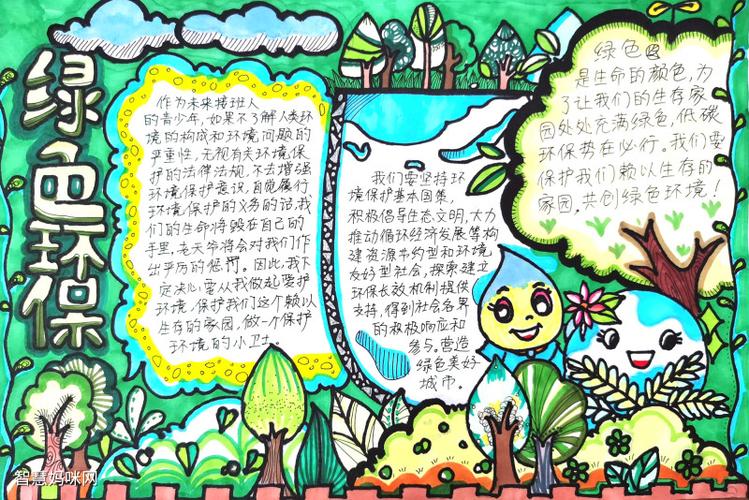 绿色环保
作为未来接班人
的青少年,如果不了解人类环
境的构成和环境问题的
严重性,无视有关环境保
护的法律法规,不去增强
环境保护意识,自觉履行
环境保护的义务的话,我
们的生命将毁在自己的
手里,老天爷将会对我们作
出严厉的惩罚。因此,我下
定决心,要从我做起爱护
环境,保护我们这个赖以
生存的家园,做一个保护
环境的小卫士。
我们要坚持环
境保护基本国策,
积极倡导生态文明,大力
推动循环经济发展等构
建资源节约型和环境
友好型社会,探索建立
环保长效机制提供
支持,得到社会各界
的积极响应和
参与。营造
绿色美好
城市.
绿色
是生命的颜色,为
了让我们的生存家
园处处充满绿色,低碳
环保势在必行。我们要
保护我们赖以生存的
家园,共创绿色环境!
智慧妈咪网